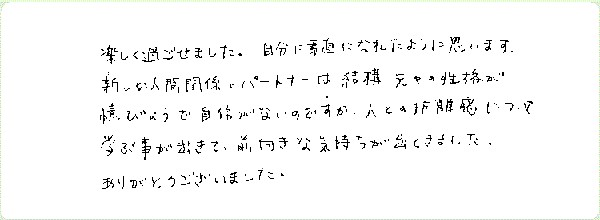 楽しく過ごせました。自分に素直になれたように思います。
新しい人間関係、パートナーは結構元々の性格が
で自信がないのですが、人との距離感について
学ぶ事が出きて、前向きな気持ちが出てきました。
ありがとうございました。